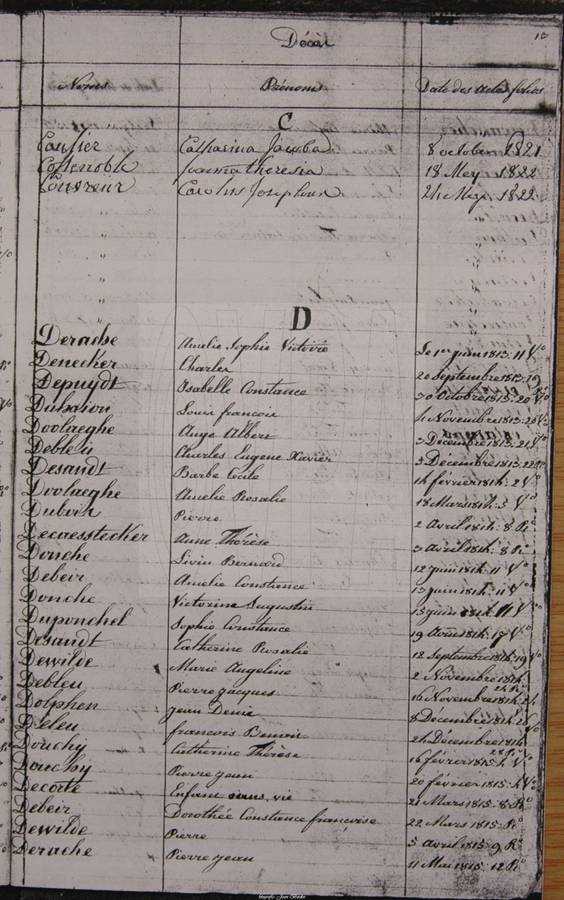 10
Décès
Noms Prénoms Date des actes folios
C
Caufier Catharina Jacoba 8 october 1821
Costenoble Joanna theresia 18 Mey 1822
Couvreur Carolus Josephus 24 Mey 1822
D
Derache Amelie Sophie Victoire Le 1er juin 1813. 11 Vo
Denecker Charles 20 Septembre 1813. 19
Depuydt Isabelle Constance 30 Octobre 1813. 20 Vo
Dubaron Louis francois 4 Novembre 1813. 20 Vo
Doolaeghe Ange Albert 3 Décembre 1813. 21 Vo
Debleu Charles Eugene Xavier 5 Décembre 1813. 22
Desaudt Barbe Cecile 14 fevrier 1814. 2 Vo
Doolaeghe Amelie Rosalie 18 Mars 1814. 5 Vo
Dubois Pierre 2 Avril 1814. 8 Ro
Decaesstecker Anne Thérèse 3 avril 1814. 8 Ro
Donche Livin Bernard 12 juin 1814. 11 Vo
Debeir Amelie Constance 13 juin 1814. 11 Vo
Donche Victorine Augustin 15 juin 1814. 11 Vo
Duponchel Sophie Constance 19 Aout 1814. 17 Vo
Desaudt Catherine Rosalie 12 Septembre 1814. 19 Vo
Dewilde Marie Angeline 2 Novembre 1814.
Debleu Pierre jacques 16 Novembre 1814. 24
Dolphen jean Denis 8 Décembre 1814. 26 Vo
Deleu francois Benoit 24 Décembre 1814.
Douchy Catherine Thérèse 16 fevrier 1815. 4 Vo
Douchy Pierre jean 20 fevrier 1815. 4 Vo
Decorte Enfant sans vie 21 Mars 1815. 8 Ro
Debeir Dorothée Constance francoise 22 Mars 1815. Ro
Dewilde Pierre 5 avril 1815. 9 Ro
Derache Pierre jean 11 Mai 1815. 12 Ro